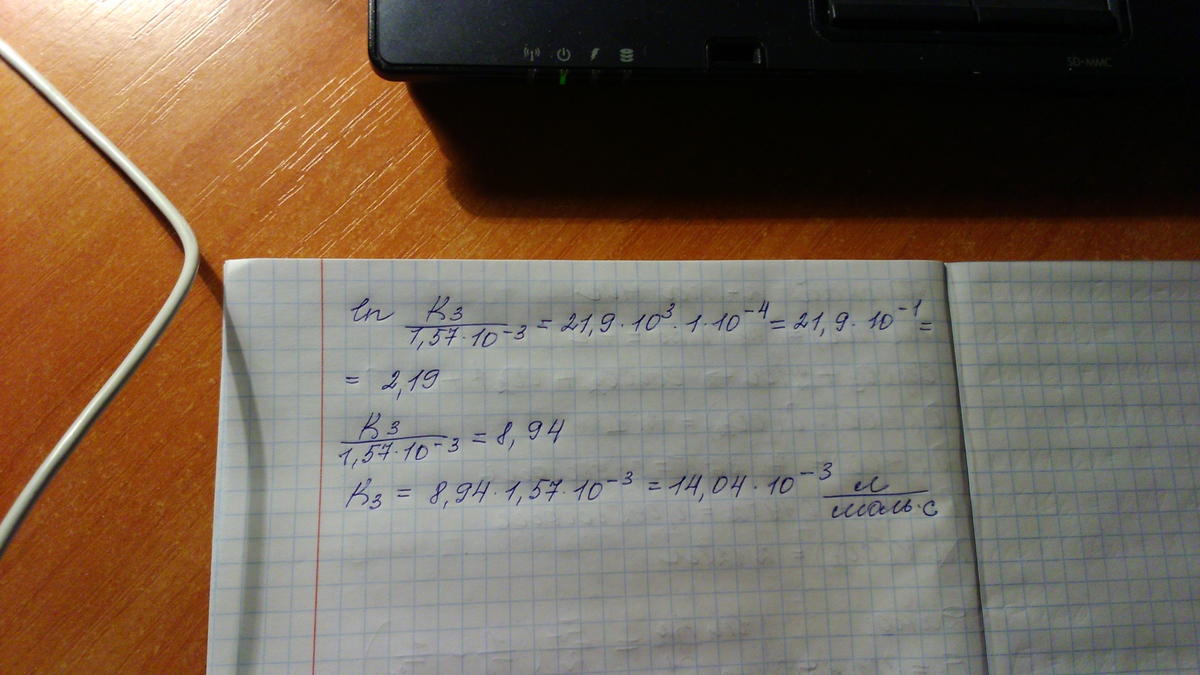 SD•MMC
ln K₃/1,57·10⁻³ = 21,9·10³·1·10⁻⁴ = 21,9·10⁻¹ =
= 2,19
K₃/1,57·10⁻³ = 8,94
K₃ = 8,94·1,57·10⁻³ = 14,04·10⁻³ л/моль·с